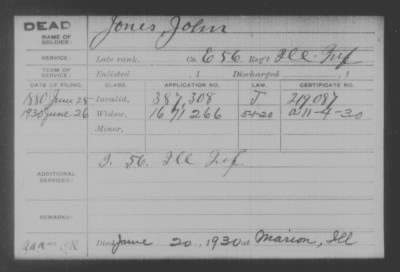 DEAD
NAME OF SOLDIER: Jones, John
SERVICE: Late rank, Co. E 56 Reg't Ill. Inf
TERM OF SERVICE: Enlisted , 1 Discharged , 1
DATE OF FILING. CLASS. APPLICATION NO. LAW. CERTIFICATE NO.
1880 June 28 Invalid, 387,308 J 219087
1930 June 26 Widow, 1671266 5-1-20 A 11-4-30
Minor,
ADDITIONAL SERVICES: I. 56. Ill Inf
REMARKS:
Died June 20, 1930 at Marion, Ill